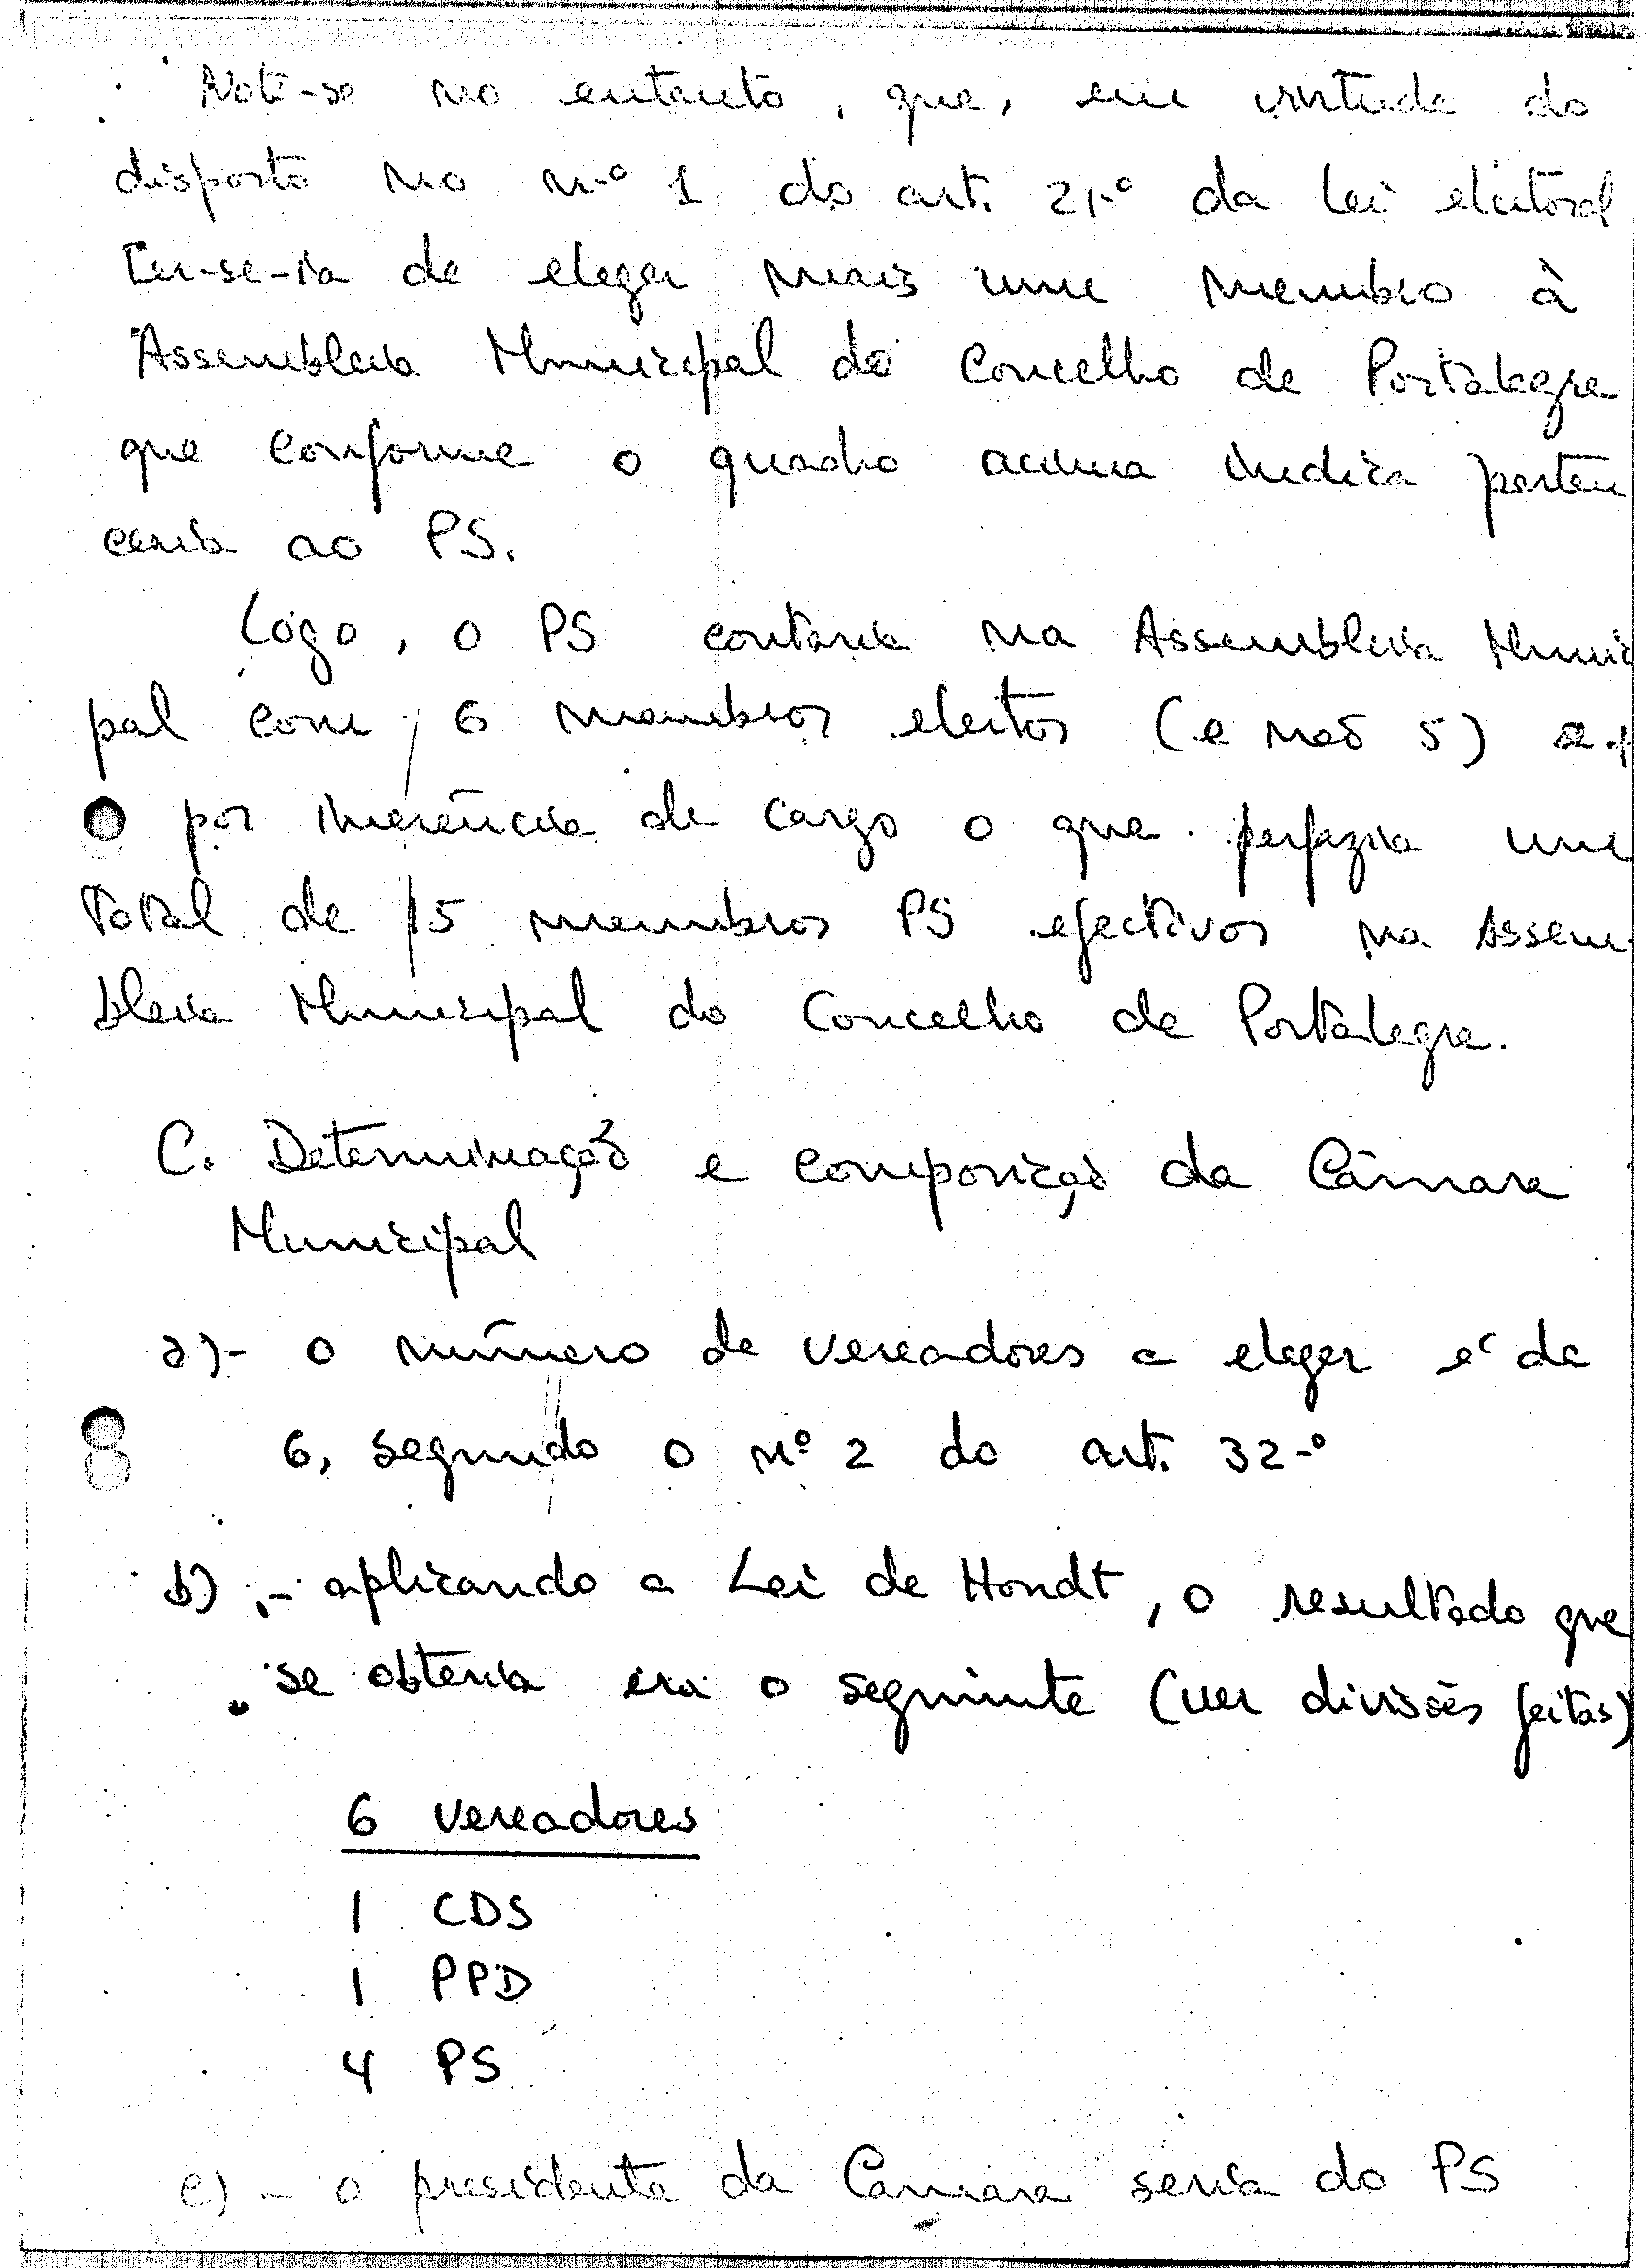 Note-se no entanto, que, em virtude do
disposto no n.º 1 do art. 21.º da lei eleitoral
ter-se-ia de eleger mais um membro à
Assembleia Municipal do Concelho de Portalegre
que conforme o quadro acima indica perten
ceria ao PS.
Logo, o PS contaria na Assembleia Munici
pal com 6 membros eleitos (e não 5)
por inerência de cargo o que perfazia um
total de 15 membros PS efectivos na Assem-
bleia Municipal do Concelho de Portalegre.
C. Determinação e composição da Câmara
Municipal
a)- o número de vereadores a eleger é de
6, segundo o nº 2 do art. 32.º
b).- aplicando a Lei de Hondt, o resultado que
se obteria era o seguinte (ver divisões feitas)
6 vereadores
1 CDS
1 PPD
4 PS
c) - o presidente da Camara seria do PS